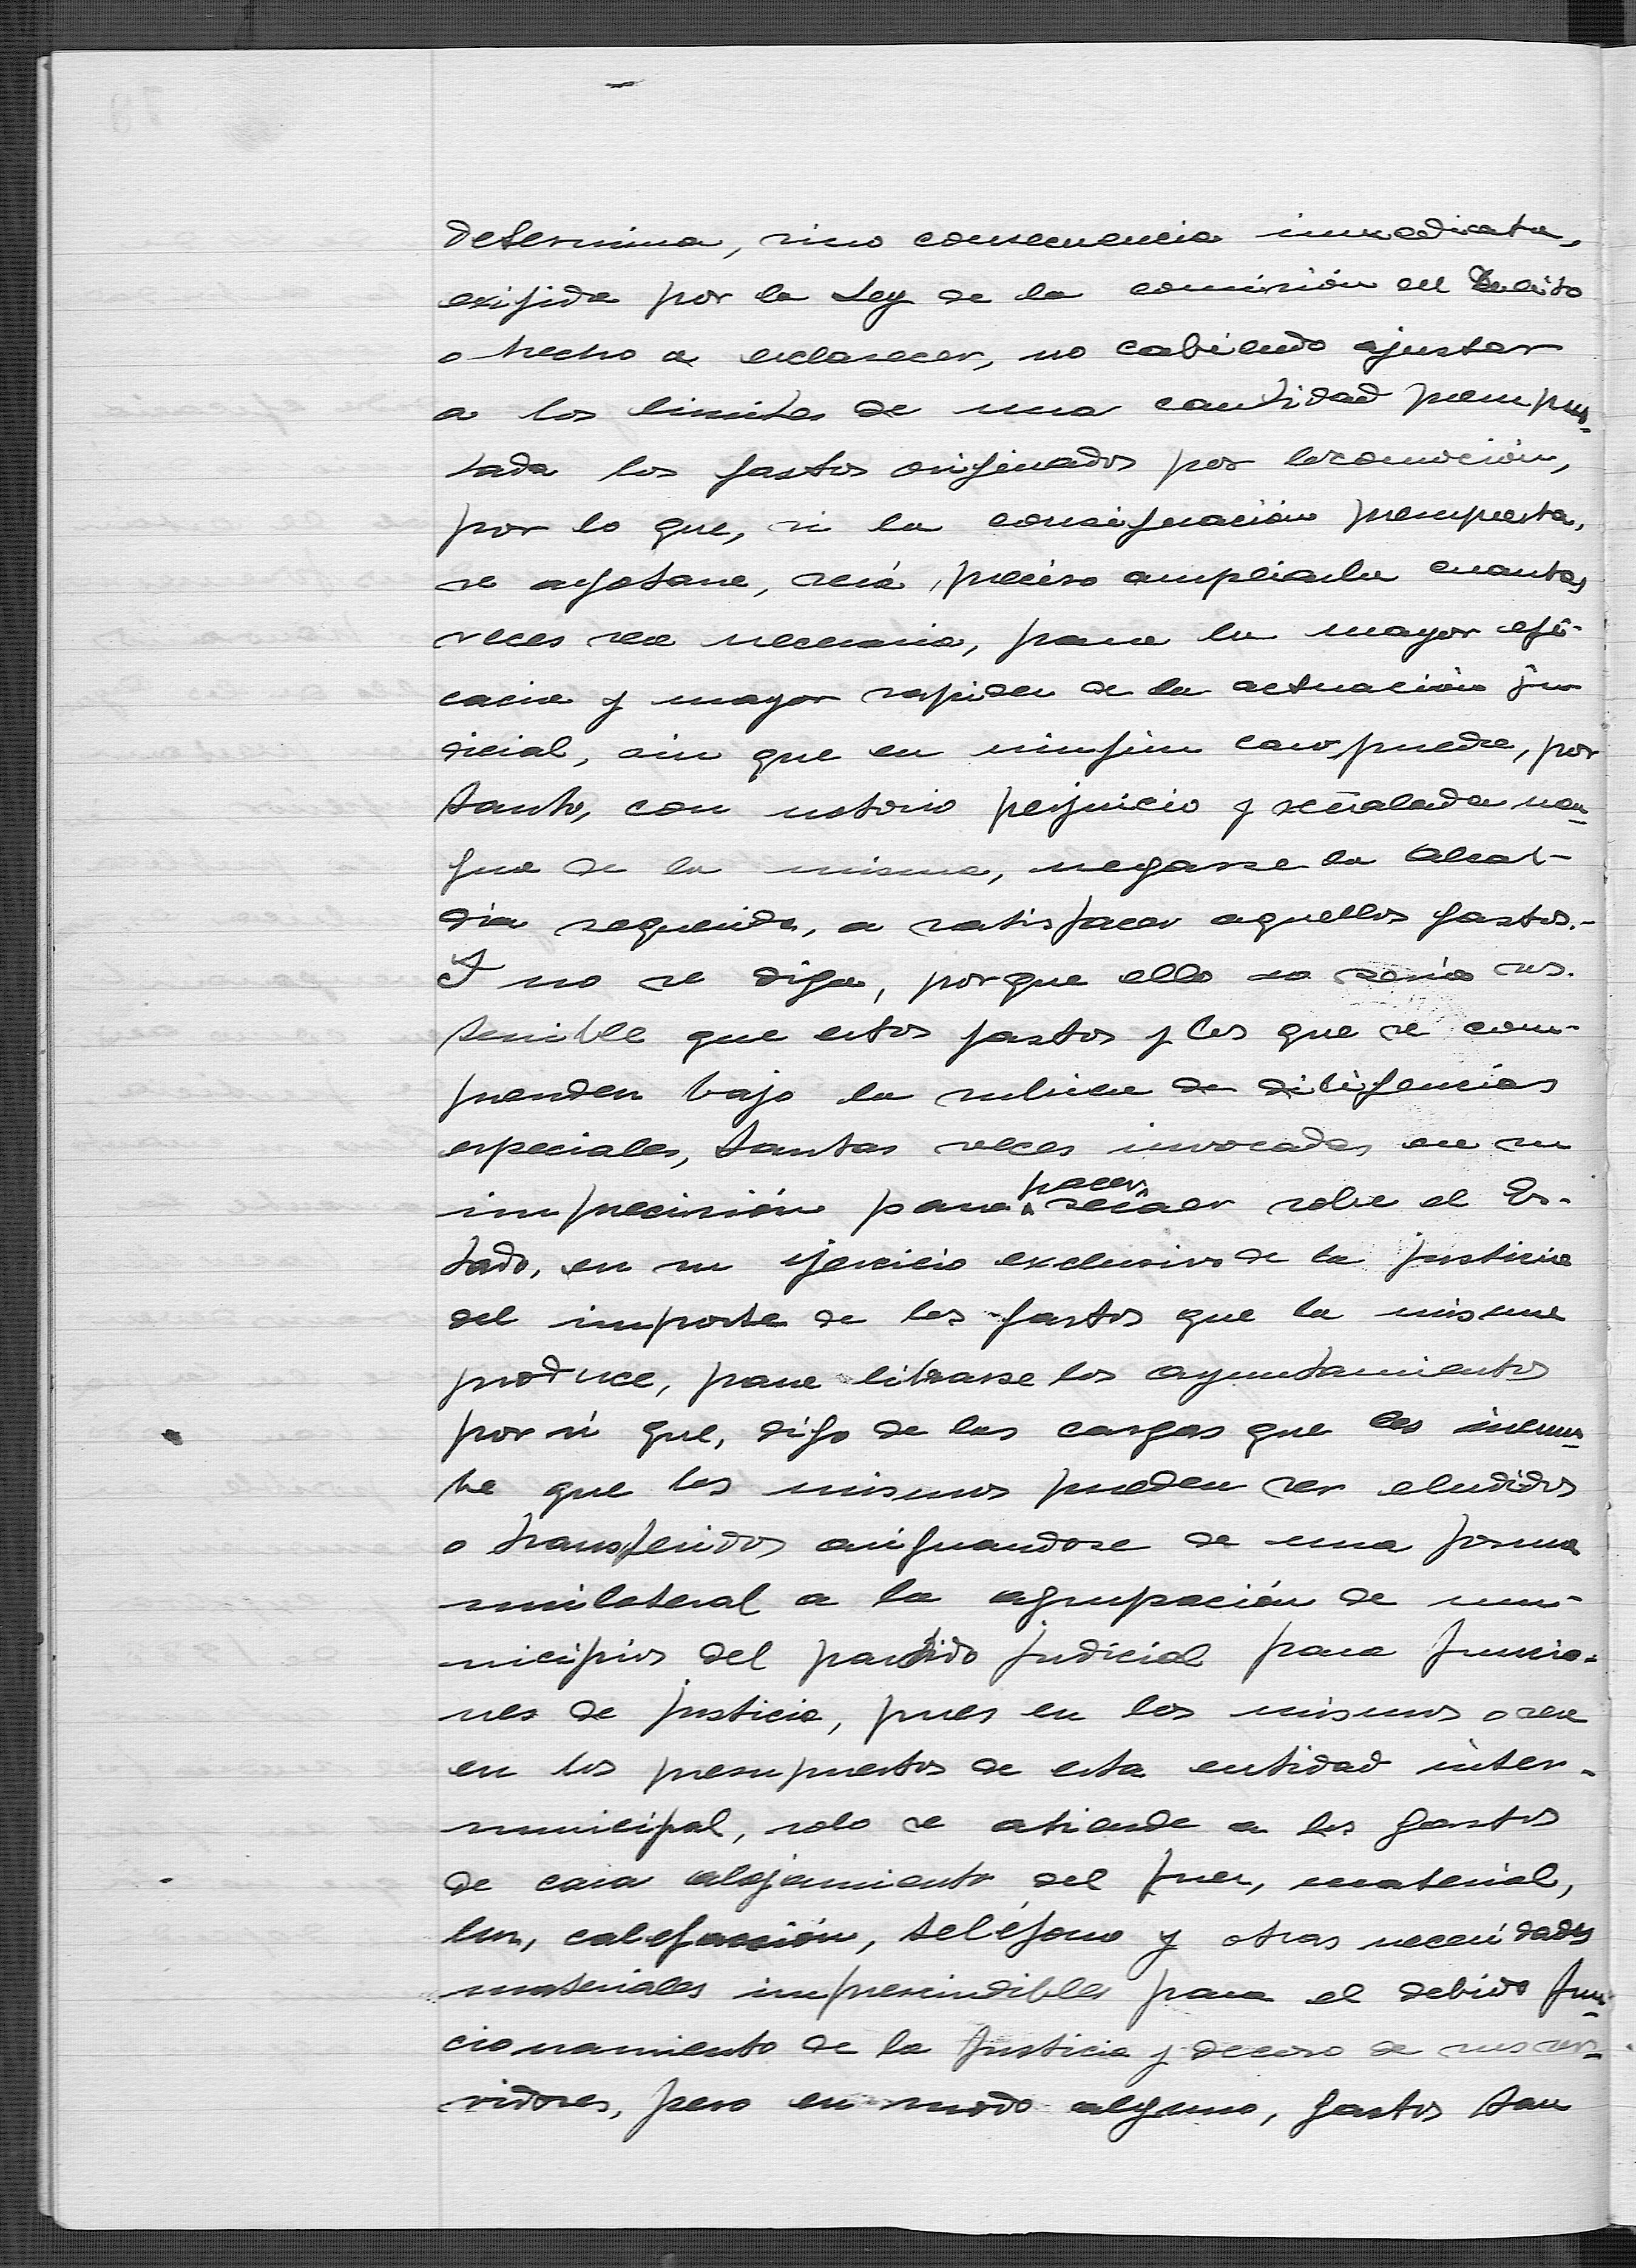 determina, sino consecuencia inmediata,
exigida por la Ley de la comisión del delito
o hecho a esclarecer, no cabiendo ajustar
a los limites de una cantidad presupues-
tada los gastos originados por locomoción,
por lo que, si la consignación presupuesta,
se agotase, será preciso ampliarla cuantas
veces sea necesario, para la mayor efi-
cacia y mayor rapidez de la actuación ju
dicial, sin que en ningún caso pueda, por
tanto, con notorio perjuicio y señalada men-
gua de la misma, negarse la Alcal-
dia requerida, a satisfacer aquellos gastos.-
Y no se diga, porque ello no sería sos-
tenible que estos gastos y los que se com-
prenden bajo la rubrica de diligencias
especiales, tantas veces invocadas en su
imprecisión para hacer recaer sobre el Es-
tado, en su ejercicio exclusivo de la justicia
del importe de los gastos que la misma
produce, para librarse los ayuntamientos
por si que, digo de las cargas que les incum-
be que los mismos pueden ser eludidos
o transferidos asignandose de una forma
unilateral a la agrupación de mu-
nicipios del partido judicial para funcio-
nes de justicia, pues en los mismos o sea
en los presupuestos de esta entidad inter-
municipal, solo se atiende a los gastos
de casa alojamiento del Juez, material,
luz, calefacción, teléfono y otras necesidades
materiales imprescindibles para el debido fun-
cionamiento de la Justicia y decoro de sus ser-
vidores, pero en modo alguno, gastos tan